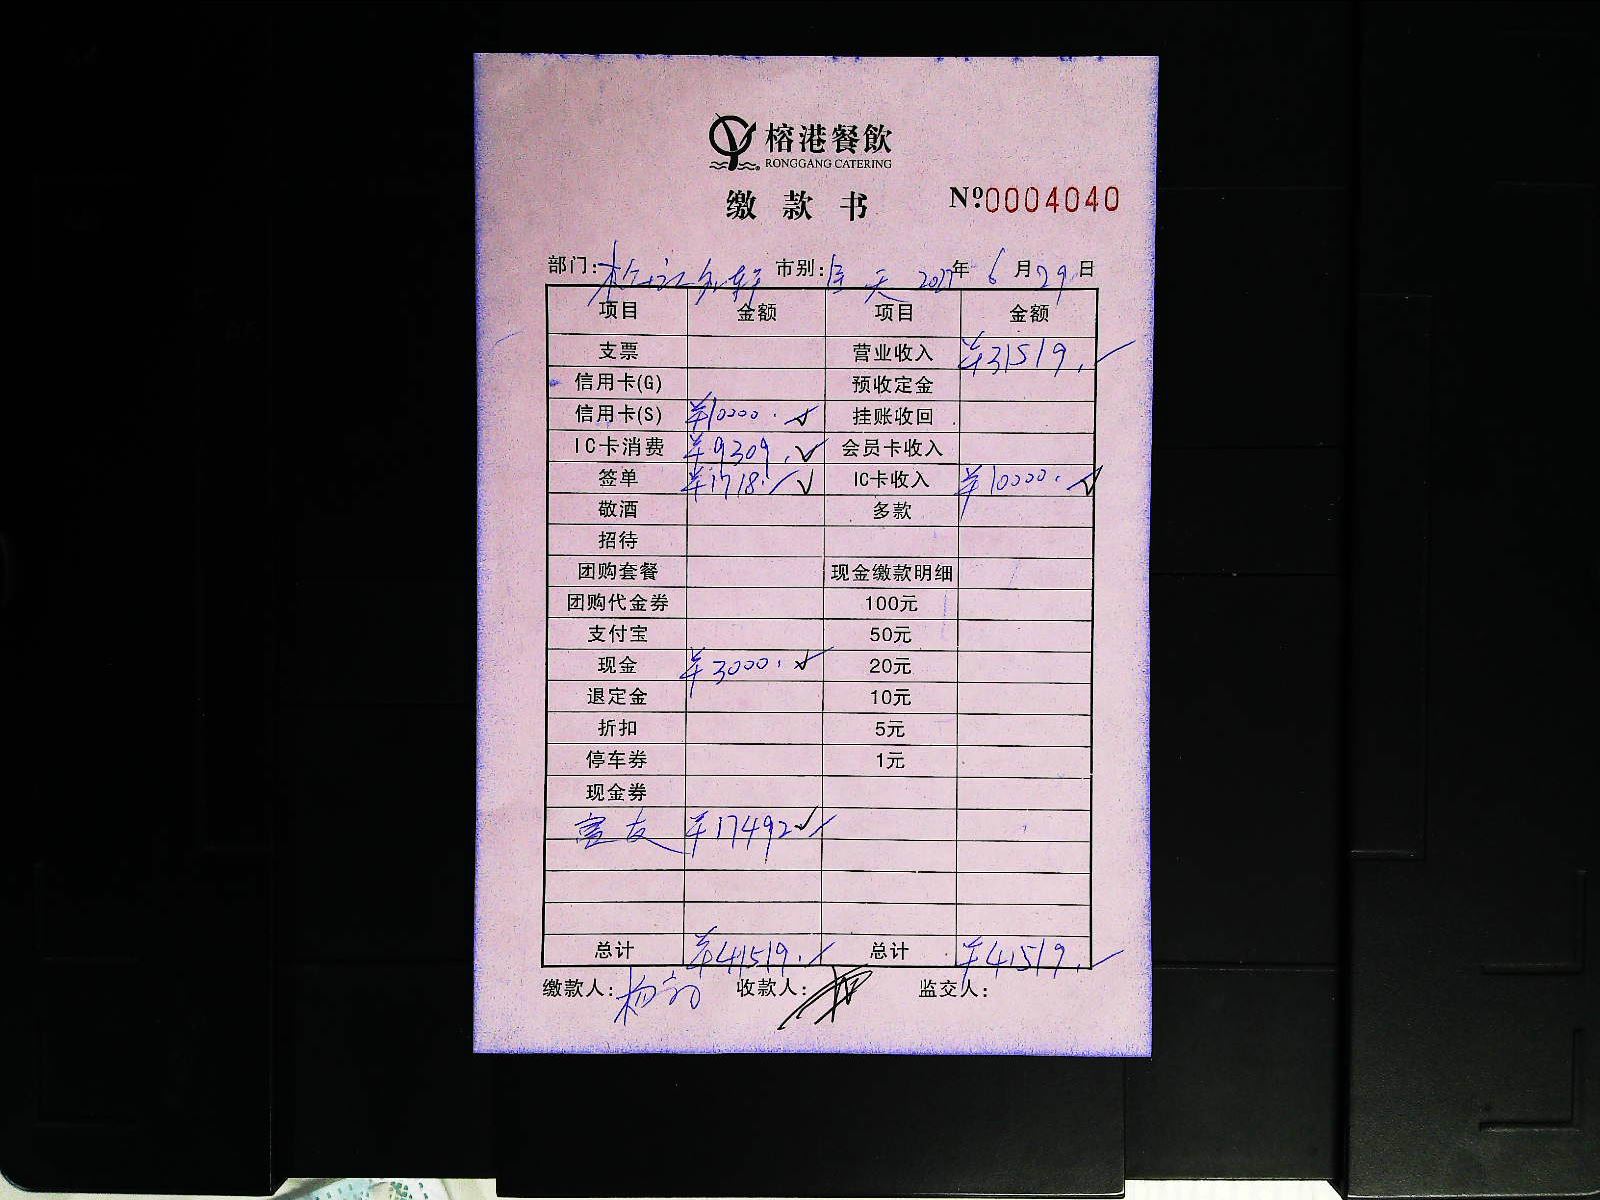 榕港餐飲
RONGGANG CATERING
缴款书 Nº 0004040
部门: 市别: 全天 年 6 月 29 日
项目 金额 项目 金额
支票 营业收入 ¥31519.
信用卡(G) 预收定金
信用卡(S) ¥10000. 挂账收回
IC卡消费 ¥9309. 会员卡收入
签单 ¥1718. IC卡收入 ¥10000.
敬酒 多款
招待
团购套餐 现金缴款明细
团购代金券 100元
支付宝 50元
现金 ¥3000. 20元
退定金 10元
折扣 5元
停车券 1元
现金券
¥17492
总计 ¥41519. 总计 ¥41519.
缴款人: 杨 收款人: 监交人: